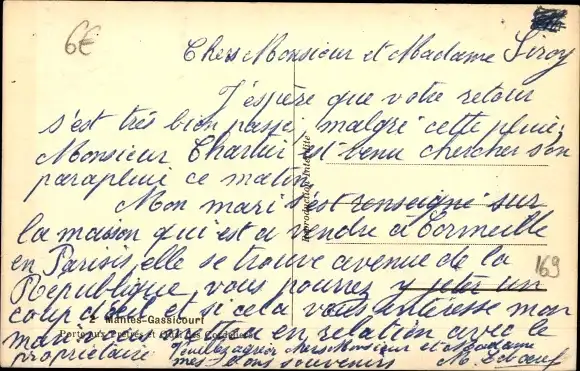 6€
Chers Monsieur et Madame Liroy
J'espère que votre retour
s'est très bien passé, malgré cette pluie,
Monsieur Chartier est venu chercher son
parapluie ce matin
Mon mari s'est renseigné sur
la maison qui est a vendre à Cormeille
en Parisis, elle se trouve avenue de la
République, vous pourrez y jeter un
coup d'œil et si cela vous intéresse mon
mari vous mettra en relation avec le
propriétaire.
Veuillez agréer chers Monsieur et Madame
mes bons souvenirs
Reproduction Interdite
169
2 Mantes-Gassicourt
Porte aux et